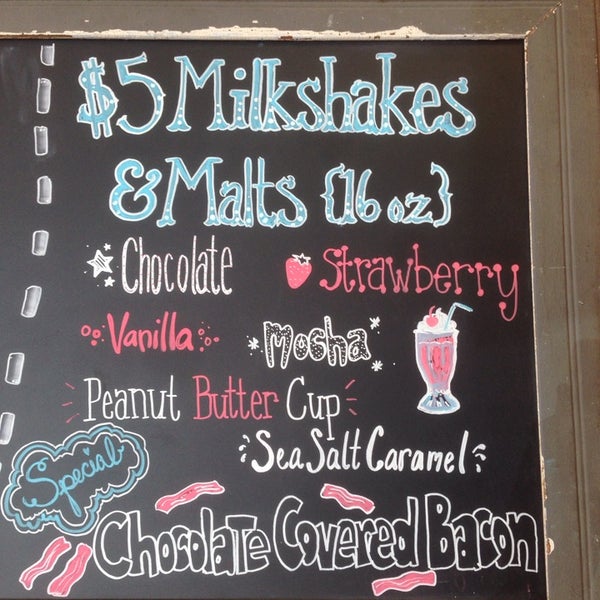 $5 Milkshakes
& Malts {16 oz}
Chocolate Strawberry
Vanilla Mocha
Peanut Butter Cup
Sea Salt Caramel
Special
Chocolate Covered Bacon